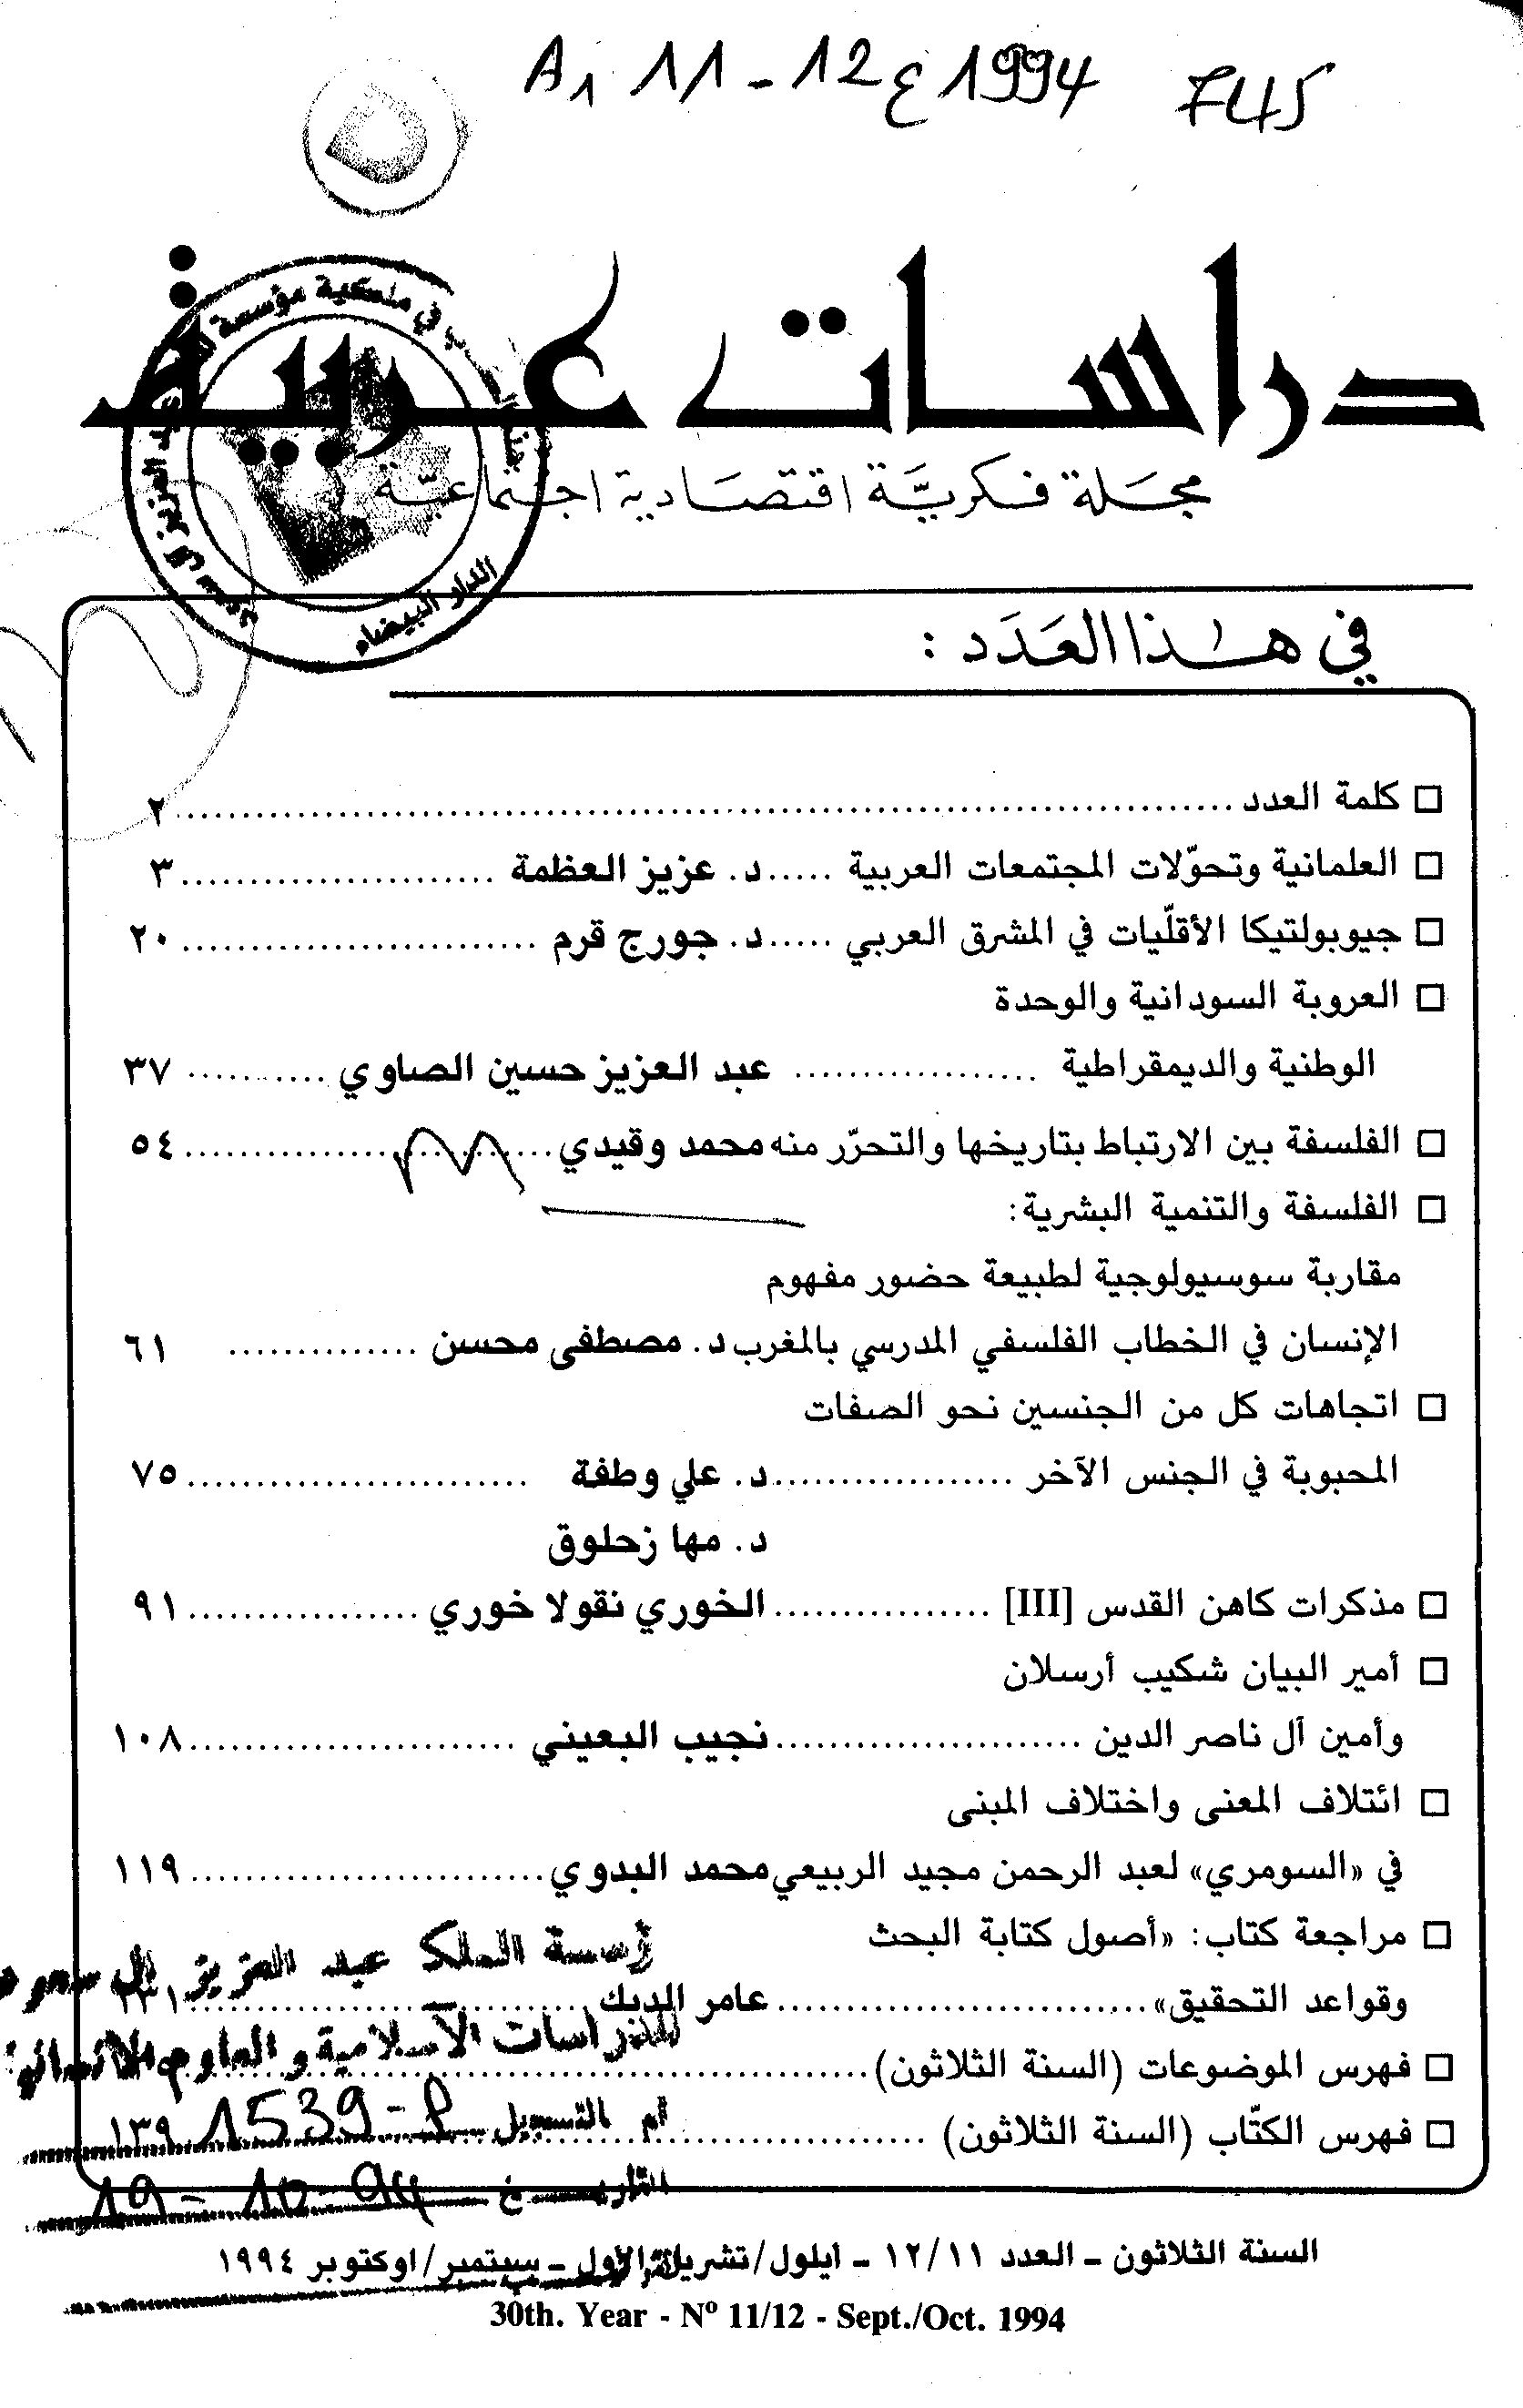 A1 11 - 12 ع 1994 745
دراسات عربية
مجلة فكريّة اقتصادية اجتماعيّة
في ملكية مؤسسة
عبد العزيز آل سعود
الدار البيضاء
في هذا العَدَد :
□ كلمة العدد ........ ٢
□ العلمانية وتحوّلات المجتمعات العربية ..... د. عزيز العظمة ........ ٣
□ جيوبولتيكا الأقلّيات في المشرق العربي ..... د. جورج قرم ........ ٢٠
□ العروبة السودانية والوحدة
الوطنية والديمقراطية ........ عبد العزيز حسين الصاوي ........ ٣٧
□ الفلسفة بين الارتباط بتاريخها والتحرّر منه محمد وقيدي ........ ٥٤
□ الفلسفة والتنمية البشرية:
مقاربة سوسيولوجية لطبيعة حضور مفهوم
الإنسان في الخطاب الفلسفي المدرسي بالمغرب د. مصطفى محسن ........ ٦١
□ اتجاهات كل من الجنسين نحو الصفات
المحبوبة في الجنس الآخر ........ د. علي وطفة ........ ٧٥
د. مها زحلوق
□ مذكرات كاهن القدس [III] ........ الخوري نقولا خوري ........ ٩١
□ أمير البيان شكيب أرسلان
وأمين آل ناصر الدين ........ نجيب البعيني ........ ١٠٨
□ ائتلاف المعنى واختلاف المبنى
في «السومري» لعبد الرحمن مجيد الربيعي محمد البدوي ........ ١١٩
□ مراجعة كتاب: «أصول كتابة البحث
وقواعد التحقيق» ........ عامر الديك ........ ١٣١
□ فهرس الموضوعات (السنة الثلاثون) ........
□ فهرس الكتّاب (السنة الثلاثون) ........ ١٣٩
ؤسسة الملك عبد العزيز آل سعود
للدراسات الاسلامية و العلوم الانسانية
م التسجيل 1539 - P
التاريخ 19 - 10 - 94
السنة الثلاثون ـ العدد ١٢/١١ ـ ايلول/تشرين الاول ـ سبتمبر/اوكتوبر ١٩٩٤
30th. Year - Nº 11/12 - Sept./Oct. 1994